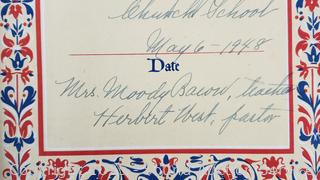 Church School
May 6-1948
Date
Mrs. Moody Bacow, teacher
Herbert West, pastor